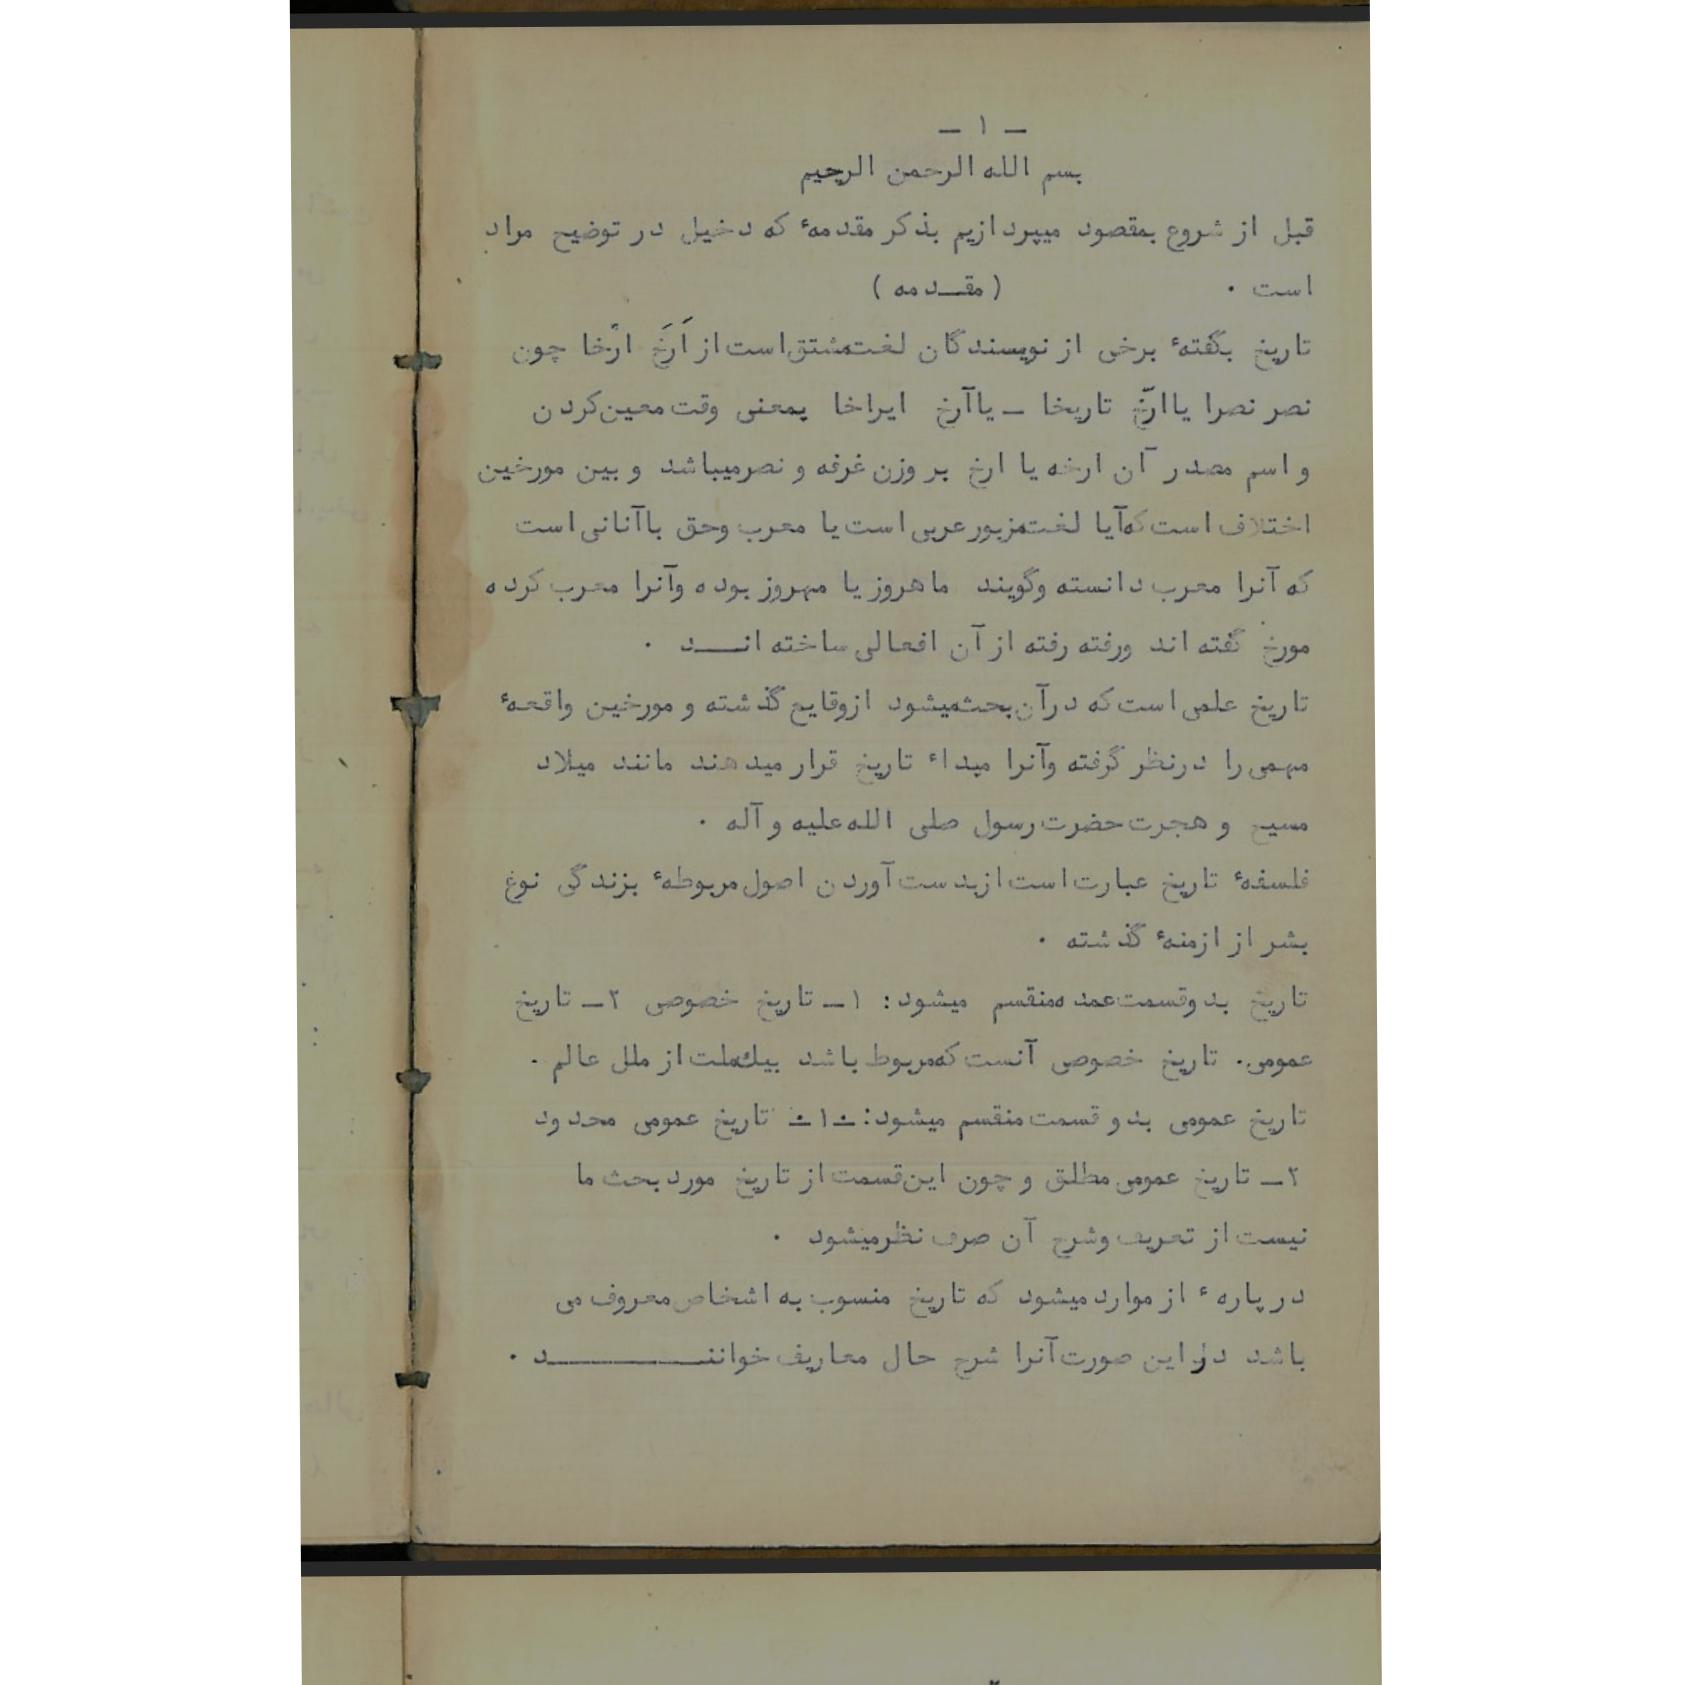 – ۱ –
بسم الله الرحمن الرحیم
قبل از شروع بمقصود میپردازیم بذکر مقدمهٔ که دخیل در توضیح مراد
است . (مقـدمه)
تاریخ بگفتهٔ برخی از نویسندگان لغت‌مشتق‌است از اَرَخَ ارْخا چون
نصر نصرا یا ارّخ تاریخا – یا آرخ ایراخا بمعنی وقت معین‌کردن
و اسم مصدر آن ارخه یا ارخ بر وزن غرفه و نصرمیباشد و بین مورخین
اختلاف است که‌آیا لغت‌مزبور عربی است یا معرب وحق با آنانی است
که آنرا معرب دانسته وگویند ماهروز یا مهروز بوده وآنرا معرب کرده
مورخ گفته اند ورفته رفته از آن افعالی ساخته انـــد .
تاریخ علمی است که درآن‌بحث‌میشود ازوقایع گذشته و مورخین واقعهٔ
مهمی را درنظر گرفته وآنرا مبداء تاریخ قرار میدهند مانند میلاد
مسیح و هجرت حضرت رسول صلی الله علیه و آله .
فلسفهٔ تاریخ عبارت است ازبدست آوردن اصول مربوطهٔ بزندگی نوع
بشر از ازمنهٔ گذشته .
تاریخ بدوقسمت عمده‌منقسم میشود : ۱ – تاریخ خصوصی ۲ – تاریخ
عمومی . تاریخ خصوصی آنست که‌مربوط باشد بیك‌ملت از ملل عالم .
تاریخ عمومی بدو قسمت منقسم میشود : – ۱ – تاریخ عمومی محدود
۲ – تاریخ عمومی مطلق و چون این‌قسمت از تاریخ مورد بحث ما
نیست از تعریف وشرح آن صرف نظرمیشود .
در پارهٔ از موارد میشود که تاریخ منسوب به اشخاص معروف می
باشد در این صورت آنرا شرح حال معاریف خواننـــــــــد .